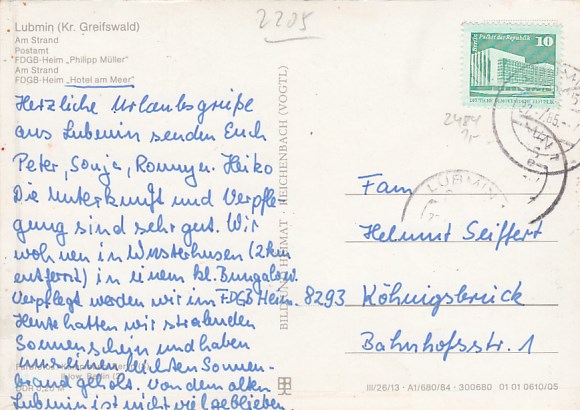 2205
Lubmin (Kr. Greifswald)
Am Strand
Postamt
FDGB-Heim „Philipp Müller"
Am Strand
FDGB-Heim „Hotel am Meer"
Herzliche Urlaubsgrüße
aus Lubmin senden Euch
Peter, Sonja, Ronny u. Heiko
Die Unterkunft und Verpfle-
gung sind sehr gut. Wir
wohnen in Wusterhusen (2km
entfernt) in einem kl. Bungalow.
Verpflegt werden wir im FDGB Heim.
Heute hatten wir stralenden
Sonnenschein und haben
uns einen leichten Sonnen-
brand geholt. Von dem alten
Lubmin ist nicht viel geblieben.
BILD UND HEIMAT REICHENBACH (VOGTL)
Berlin, Palast der Republik
10
LUBMIN
Fam
Helmut Seiffert
8293 Köhnigsbrück
Bahnhofsstr. 1
III/26/13 · A1/680/84 · 300680 01 01 0610/05